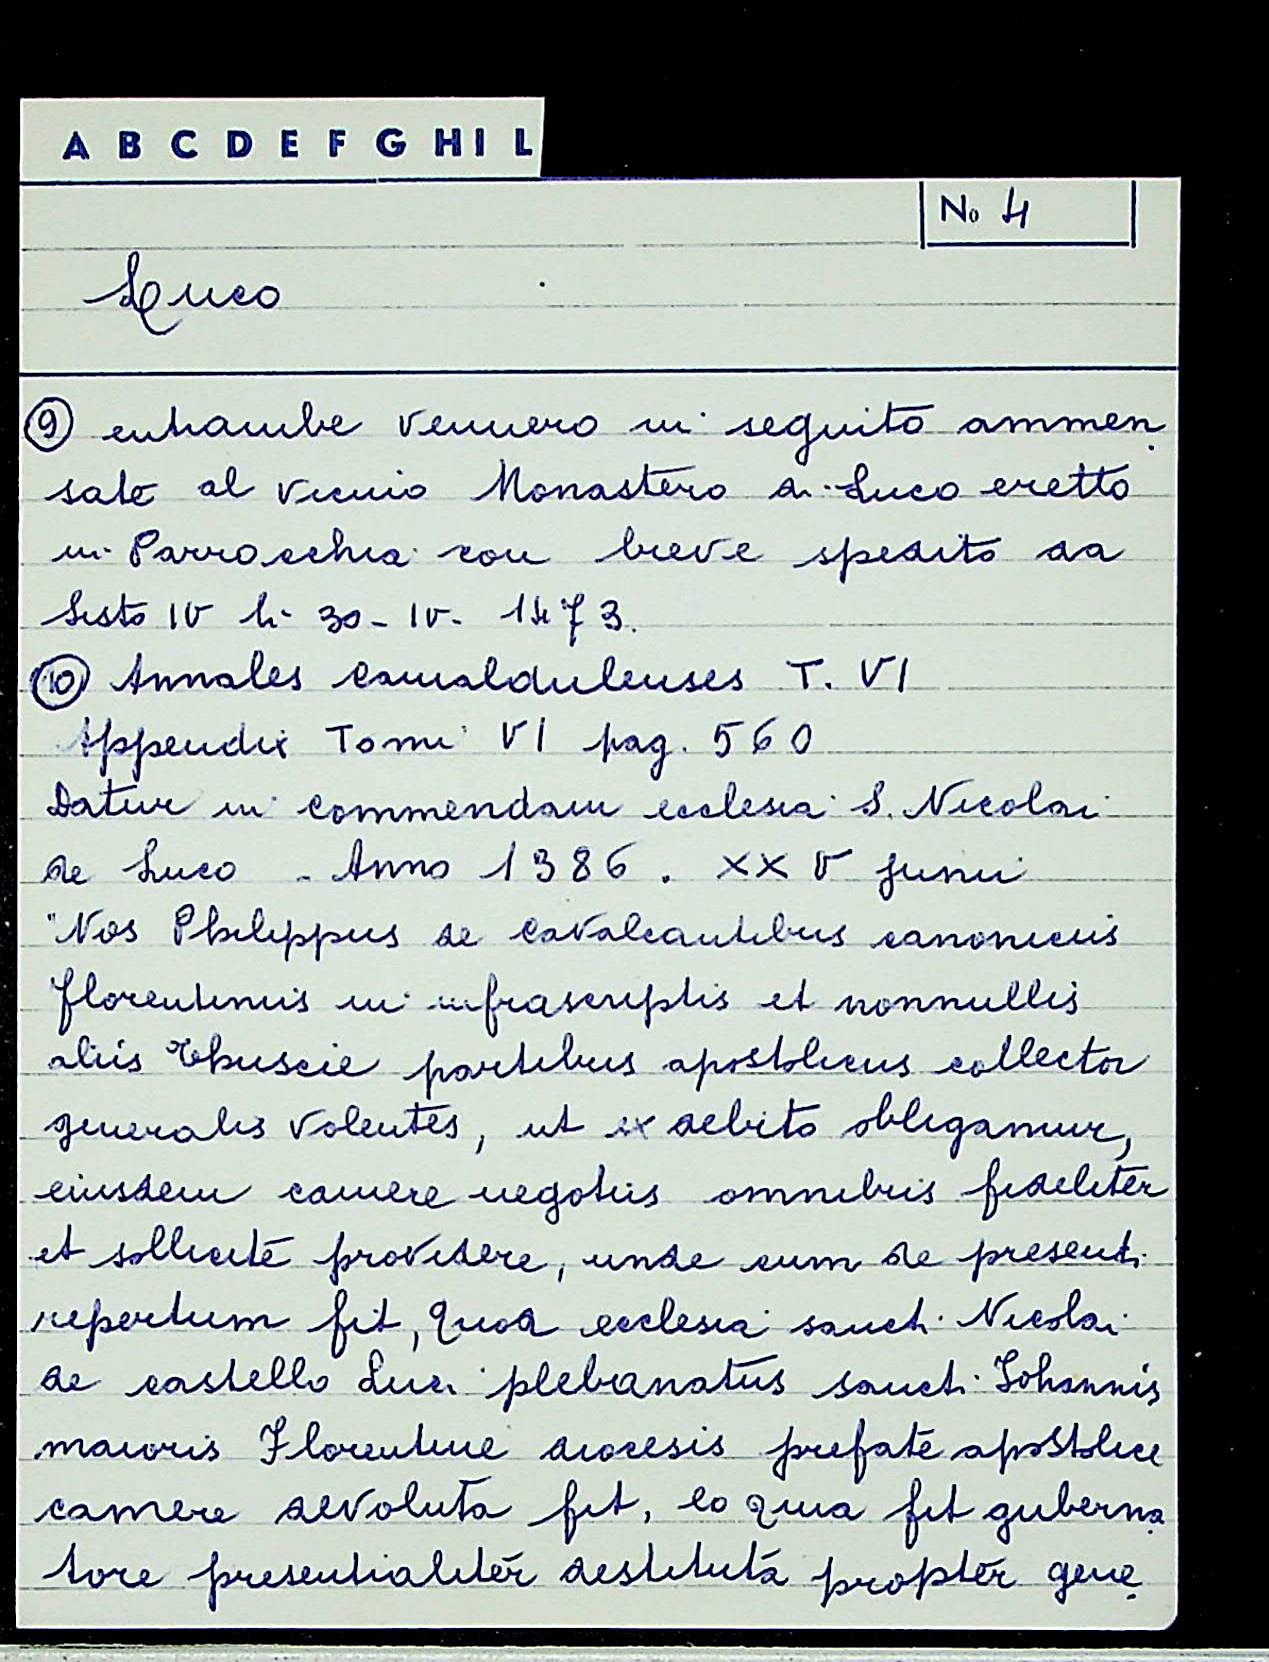 A B C D E F G H I L
No 4
Luco
⑨ entrambe vennero in seguito ammen
sate al vicino Monastero di Luco eretto
in Parrocchia con breve spedito da
Sisto IV li 30-IV-1473.
⑩ Annales camaldulenses T. VI
Appendix Tomi VI pag. 560
Datur in commendam ecclesia S. Nicolai
de Luco - Anno 1386. XXV junii
"Nos Philippus de Cavalcantibus canonicus
florentinus in infrascriptis et nonnullis
aliis Thuscie partibus apostolicus collector
generalis volentes, ut ex debito obligamur,
eiusdem camere negotiis omnibus fideliter
et sollicite providere, unde cum de presenti
repertum fit, quod ecclesia sancti Nicolai
de castello Luci plebanatus sancti Johannis
maioris Florentine diocesis prefate apostolice
camere devoluta fit, eo quia fit guberna
tore presentialiter destituta propter gene